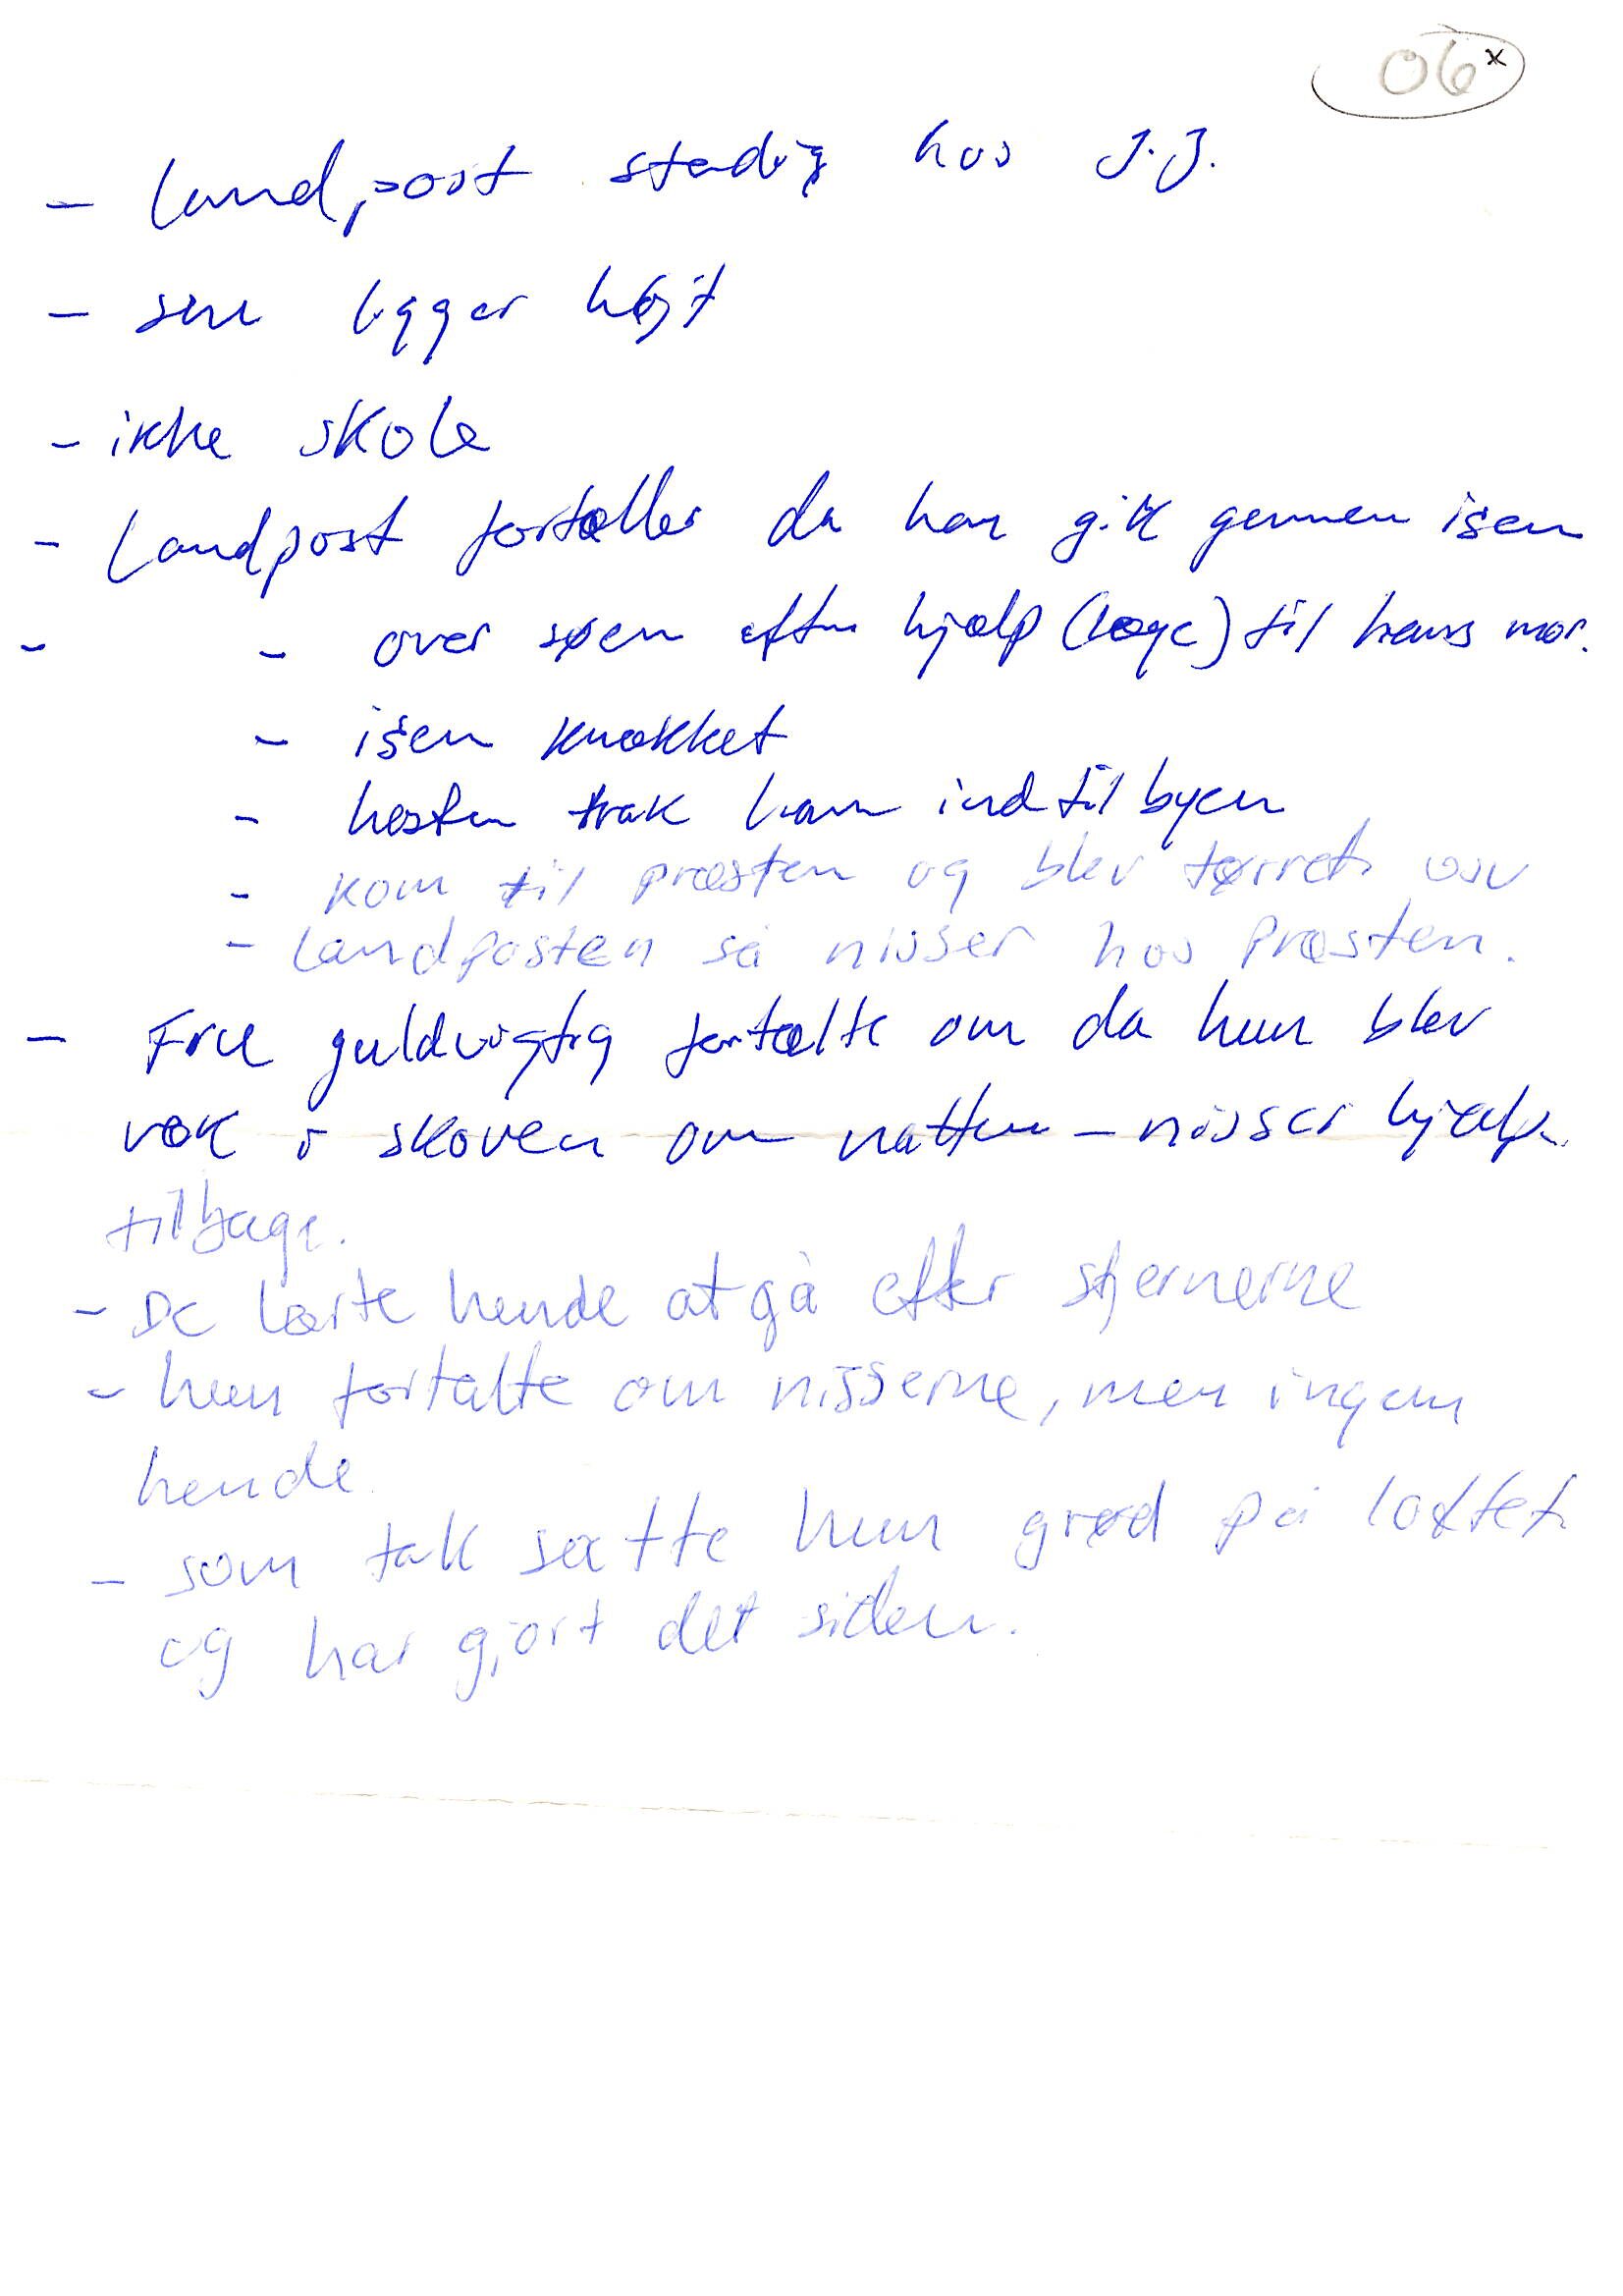 06 x
- Landpost stadig hos J.J.
- sne ligger højt
- ikke skole
- Landpost fortæller da han gik gennem isen
- - over søen efter hjælp (læge) til hans mor.
- isen knækket
- hesten trak ham ind til byen
- kom til præsten og blev tørret osv
- Landposten så nisser hos Præsten.
- Frue guldvigtig fortalte om da hun blev
væk i skoven om natten - nisser hjalp
tilbage.
- De lærte hende at gå efter stjernerne
- hun fortalte om nisserne, men ingen
hende.
- som tak sætte hun grød på loftet
og har gjort det siden.